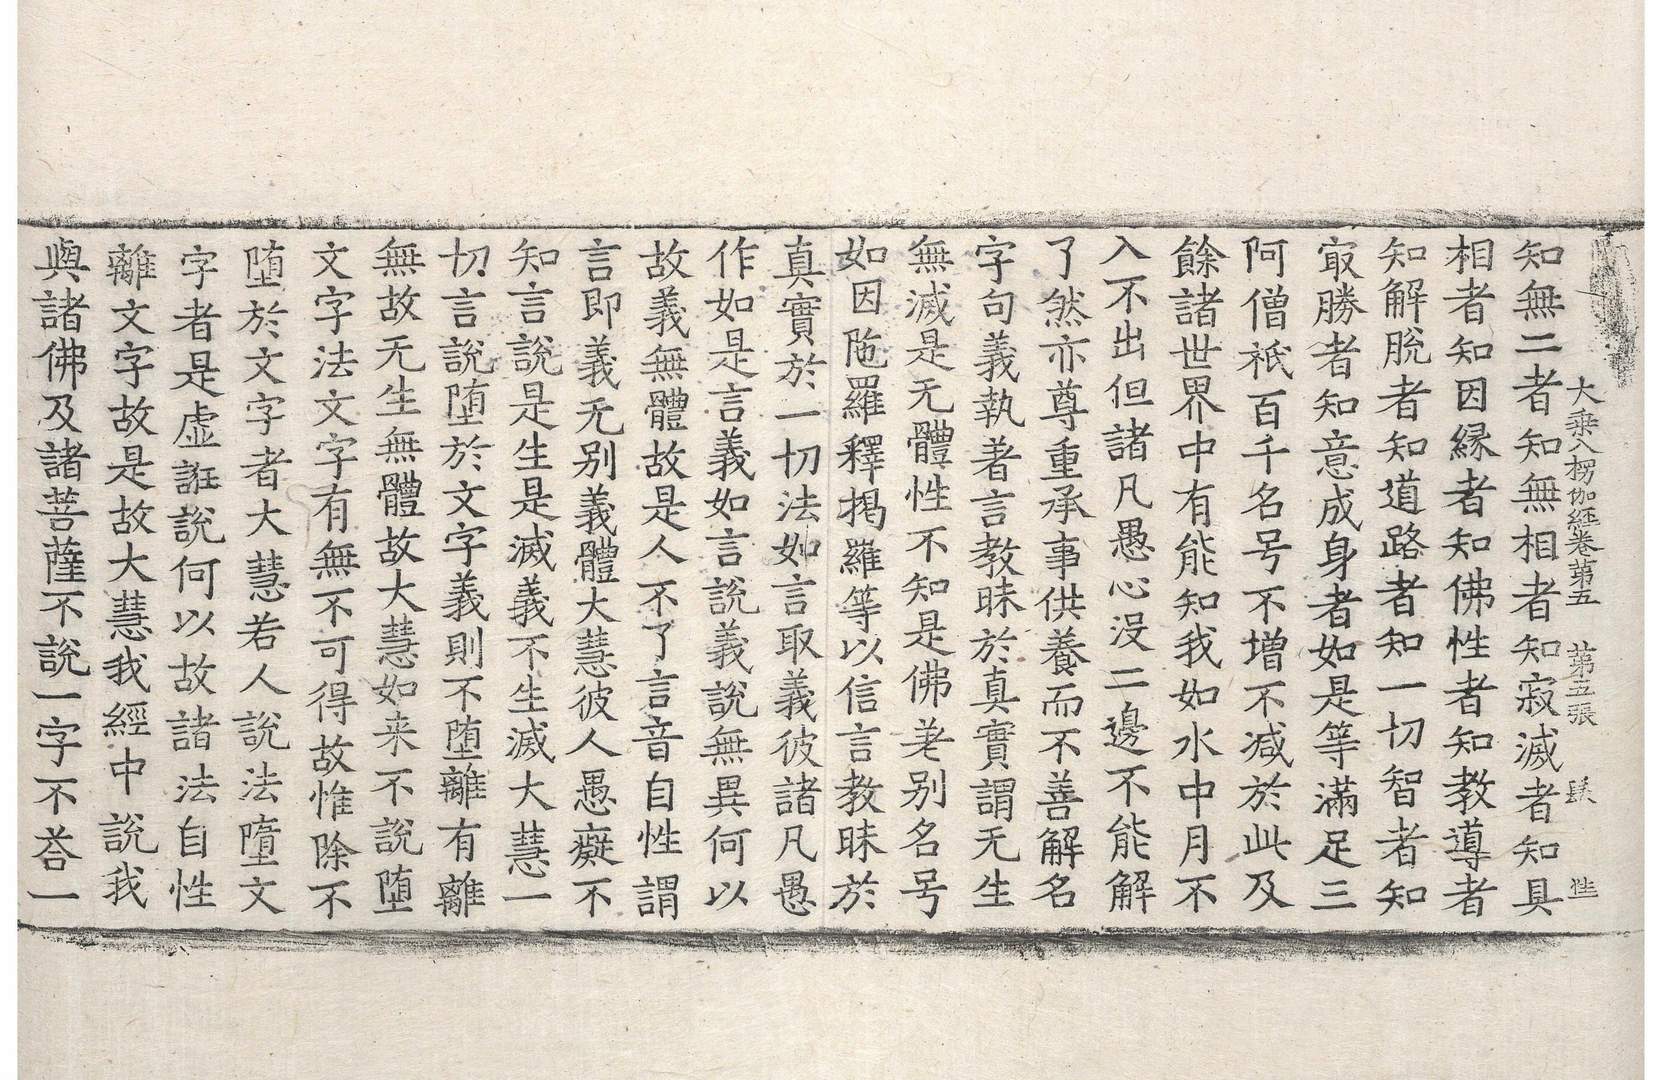 大乗入楞伽經卷苐五 苐五張
知無二者知無相者知寂滅者知具
相者知因縁者知佛性者知教導者
知解脫者知道路者知一切智者知
冣勝者知意成身者如是等滿足三
阿僧祇百千名号不增不减於此及
餘諸世界中有能知我如水中月不
入不出但諸凡愚心没二邊不能解
了然亦尊重承事供養而不善解名
字句義執著言教昧於真實謂无生
無滅是无體性不知是佛差别名号
如因陁羅釋揭羅等以信言教昧於
真實於一切法如言取義彼諸凡愚
作如是言義如言說義說無異何以
故義無體故是人不了言音自性謂
言即義无别義體大慧彼人愚癡不
知言說是生是滅義不生滅大慧一
切言說堕於文字義則不堕離有離
無故无生無體故大慧如来不說堕
文字法文字有無不可得故惟除不
堕於文字者大慧若人說法墮文
字者是虛誑說何以故諸法自性
離文字故是故大慧我經中說我
與諸佛及諸菩薩不說一字不荅一